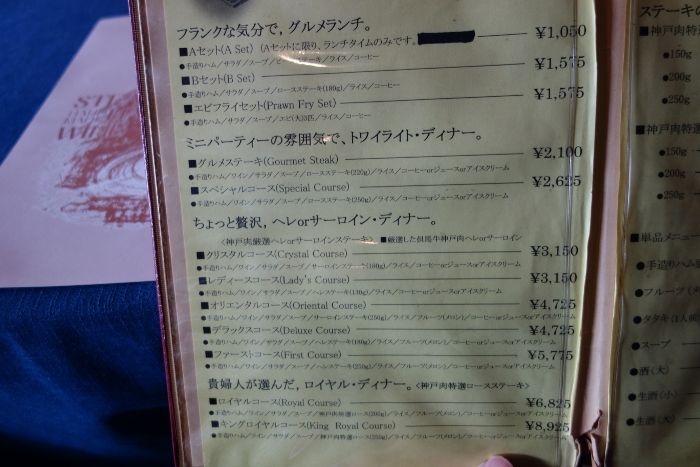 フランクな気分で，グルメランチ。
■Aセット(A Set) (Aセットに限り，ランチタイムのみです。 ¥1,050
●手造りハム／サラダ／スープ／ステーキ／ライス／コーヒー
■Bセット(B Set) ¥1,575
●手造りハム／サラダ／スープ／ロースステーキ(180g)／ライス／コーヒー
■エビフライセット(Prawn Fry Set) ¥1,575
●手造りハム／サラダ／スープ／エビ(大)3匹／ライス／コーヒー
ミニパーティーの雰囲気で、トワイライト・ディナー。
■グルメステーキ(Gourmet Steak) ¥2,100
●手造りハム／ワイン／サラダ／スープ／ロースステーキ(220g)／ライス／コーヒーorジュースorアイスクリーム
■スペシャルコース(Special Course) ¥2,625
●手造りハム／ワイン／サラダ／スープ／ロースステーキ(250g)／ライス／コーヒーorジュースorアイスクリーム
ちょっと贅沢，ヘレorサーロイン・ディナー。
〈神戸肉厳選ヘレorサーロインステーキ〉 ■厳選した但馬牛神戸肉ヘレorサーロイン
■クリスタルコース(Crystal Course) ¥3,150
●手造りハム／ワイン／サラダ／スープ／サーロインステーキ(160g)／ライス／コーヒーorジュースorアイスクリーム
■レディースコース(Lady's Course) ¥3,150
●手造りハム／ワイン／サラダ／スープ／ヘレステーキ(130g)／ライス／コーヒーorジュースorアイスクリーム
■オリエンタルコース(Oriental Course) ¥4,725
●手造りハム／ワイン／サラダ／スープ／サーロインステーキ(250g)／ライス／フルーツ(メロン)／コーヒーorジュースorアイスクリーム
■デラックスコース(Deluxe Course) ¥4,725
●手造りハム／ワイン／サラダ／スープ／ヘレステーキ(180g)／ライス／フルーツ(メロン)／コーヒーorジュースorアイスクリーム
■ファーストコース(First Course) ¥5,775
●手造りハム／ワイン／サラダ／スープ／ヘレステーキ(250g)／ライス／フルーツ(メロン)／コーヒーorジュースorアイスクリーム
貴婦人が選んだ，ロイヤル・ディナー。〈神戸肉特選ロースステーキ〉
■ロイヤルコース(Royal Course) ¥6,825
●手造りハム／ワイン／サラダ／スープ／神戸肉特選ロース(200g)／ライス／フルーツ(メロン)／コーヒーorジュースorアイスクリーム
■キングロイヤルコース(King Royal Course) ¥8,925
●手造りハム／ワイン／サラダ／スープ／神戸肉特選ロース(250g)／ライス／フルーツ(メロン)／コーヒーorジュースorアイスクリーム
ステーキの
■神戸肉特選
●150g
●200g
●250g
■神戸肉特
●150g
●200g
●250g
■単品メニュー
●手造りハム
●フルーツ(メ
●タタキ(1人前
●スープ
●酒(大)
●生酒(小)
●生酒(大)